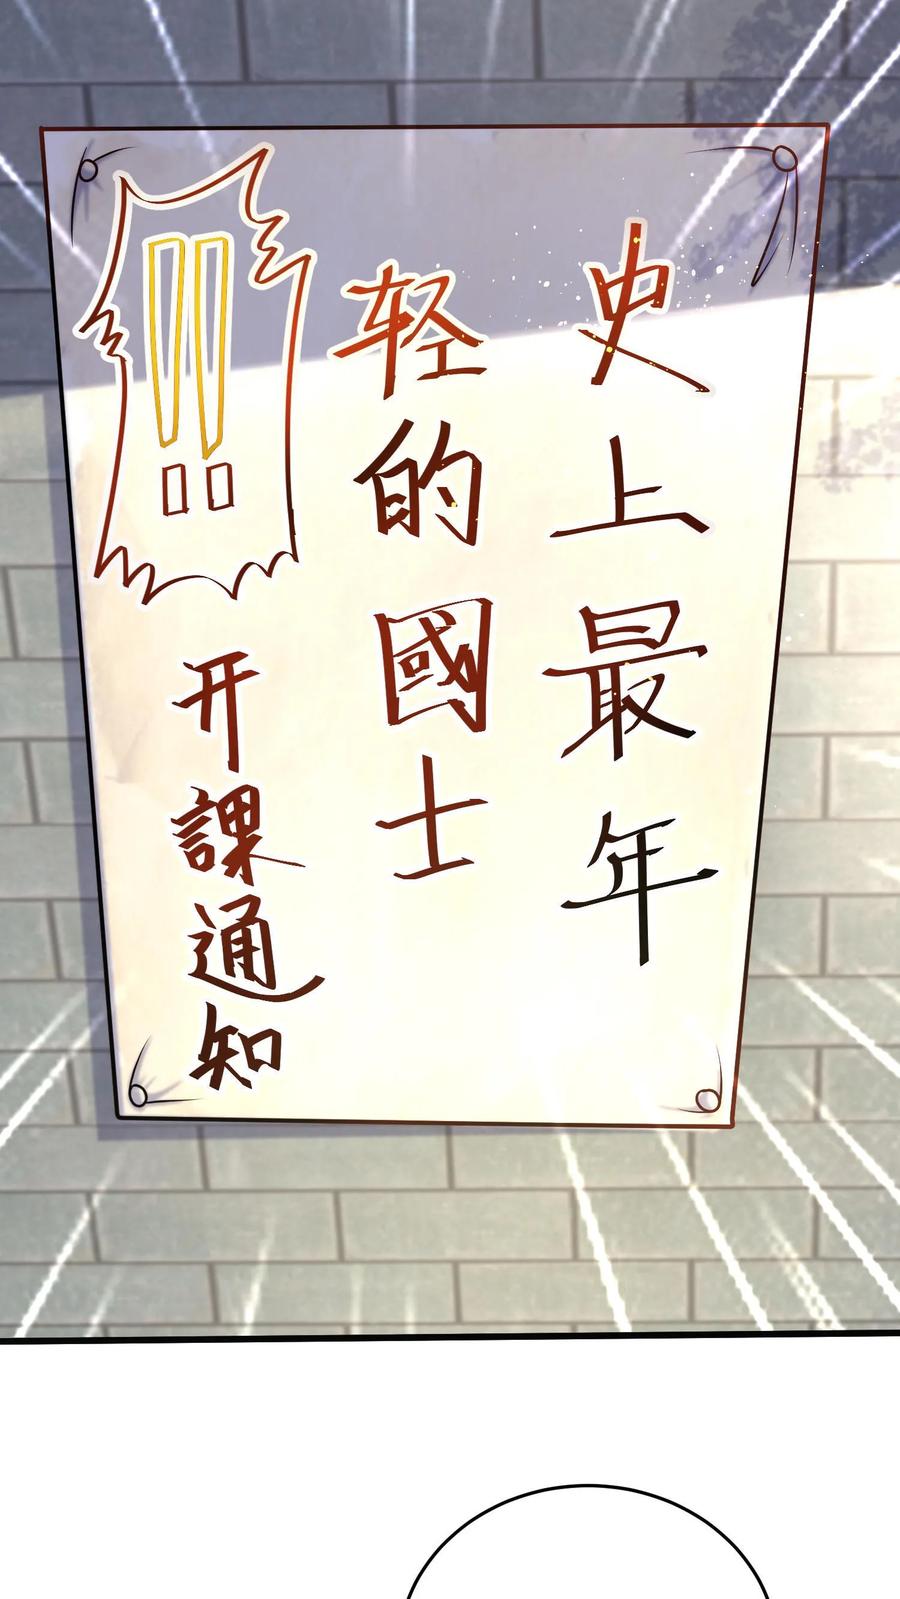 史上最年
轻的國士
!! 开課通知